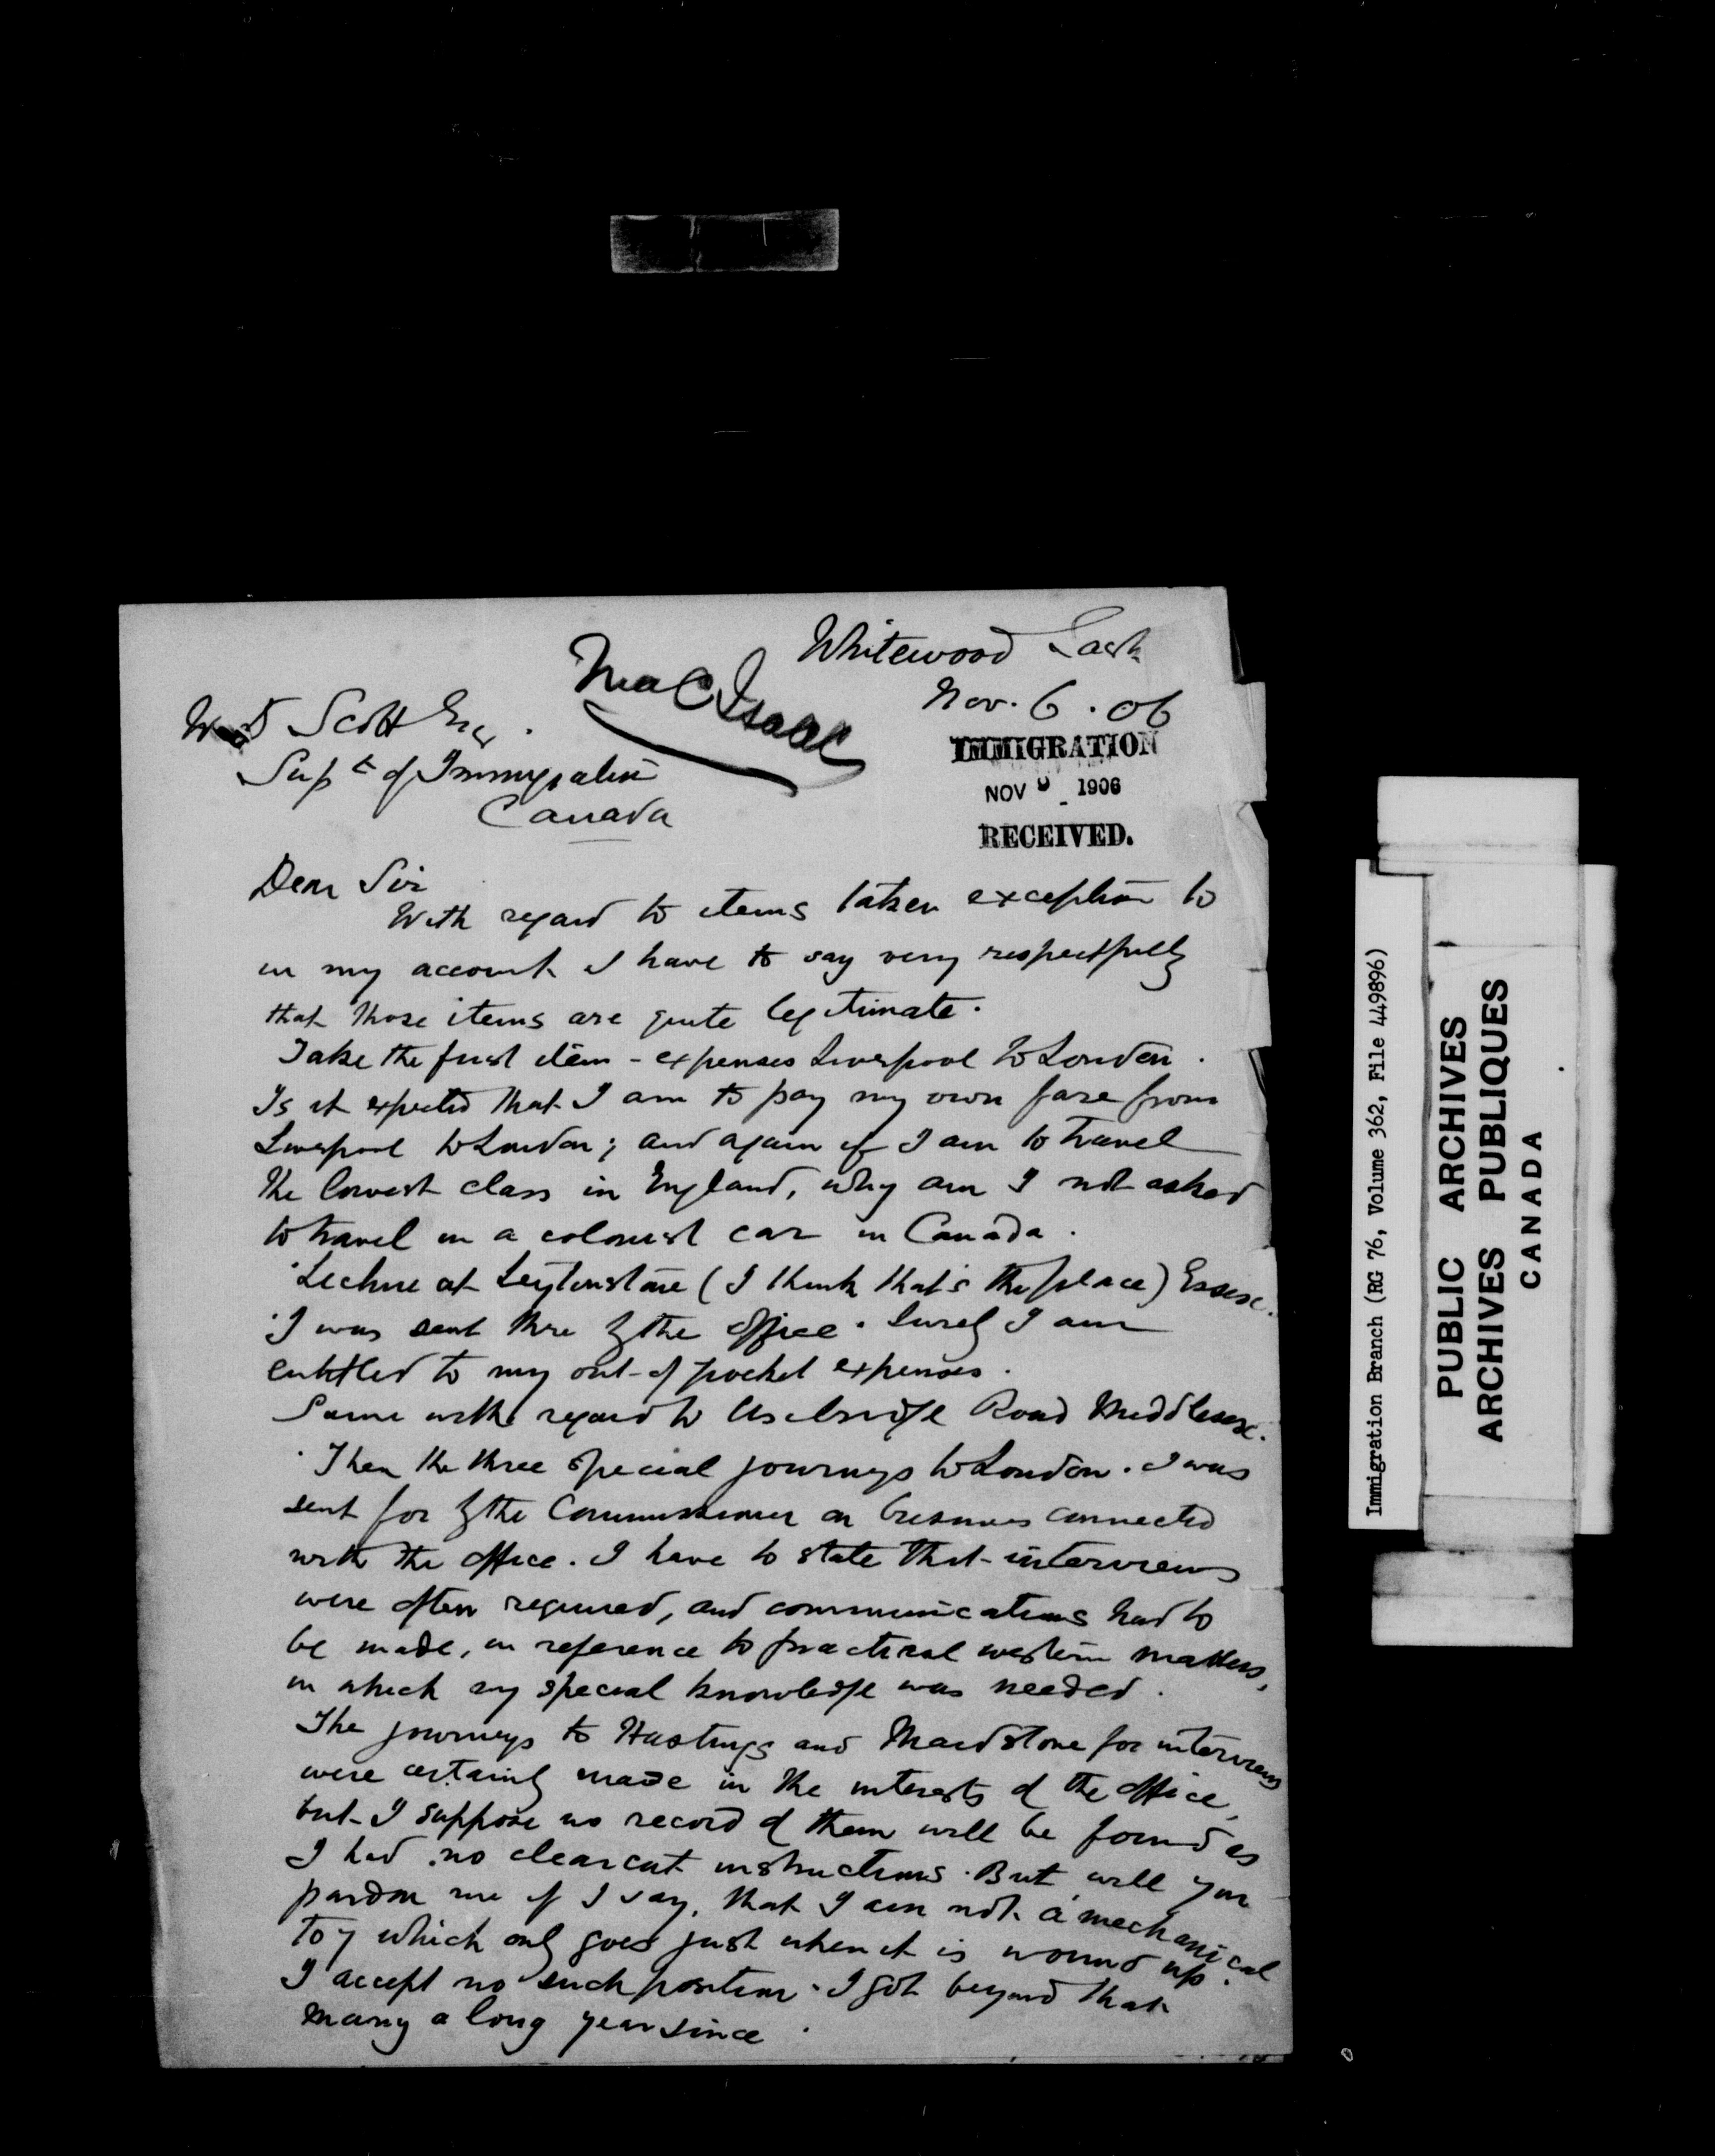 Whitewood Sask
Nov. 6. 06
MacIsaac
W D Scott Esq.
Supt of Immigration
Canada
IMMIGRATION
NOV 9 1906
RECEIVED.
Dear Sir
With regard to items taken exception to
in my account I have to say very respectfully
that those items are quite legitimate.
Take the first item - expenses Liverpool to London.
Is it expected that I am to pay my own fare from
Liverpool to London; and again if I am to travel
the lowest class in England, why am I not asked
to travel in a colonist car in Canada.
Lecture at Leytonstone (I think that's the place) Essex.
I was sent there by the office. Surely I am
entitled to my out-of pocket expenses.
Same with regard to Uxbridge Road Middlesex.
Then the three special journeys to London. I was
sent for by the Commissioner on business connected
with the office. I have to state that interviews
were often required, and communications had to
be made, in reference to practical western matters,
in which my special knowledge was needed.
The journeys to Hastings and Maidstone for interviews
were certainly made in the interests of the office,
but I suppose no record of them will be found as
I had no clearcut instructions. But will you
pardon me if I say, that I am not a mechanical
toy which only goes just when it is wound up.
I accept no such position. I got beyond that
many a long year since.
Immigration Branch (RG 76, Volume 362, File 449896)
PUBLIC ARCHIVES
ARCHIVES PUBLIQUES
CANADA